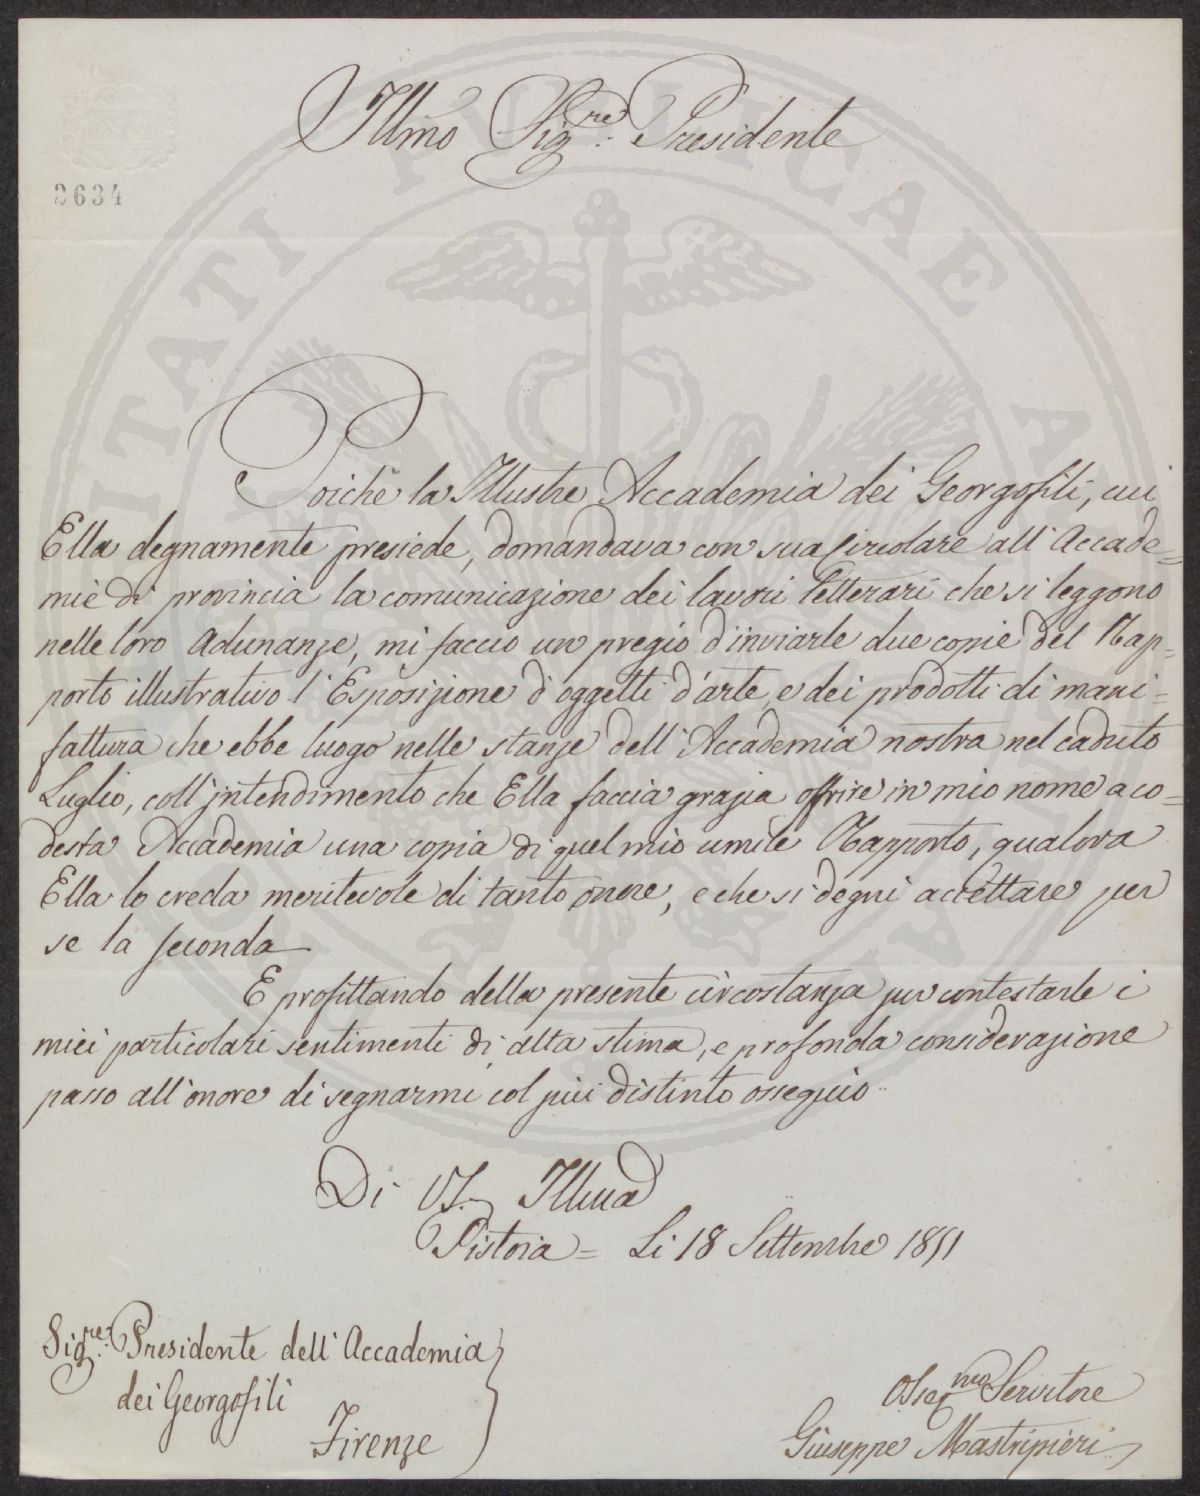 Illmo Sigre: Presidente
2634
Poichè la Illustre Accademia dei Georgofili, cui
Ella degnamente presiede, domandava con sua Circolare all' Accade=
mie di provincia la comunicazione dei lavori letterari che si leggono
nelle loro Adunanze, mi faccio un pregio d'inviarle due copie del Rap=
porto illustrativo l'Esposizione d'oggetti d'arte, e dei prodotti di mani=
fattura che ebbe luogo nelle stanze dell'Accademia nostra nel caduto
Luglio, coll'intendimento che Ella faccia grazia offrire in mio nome a co=
desta Accademia una copia di quel mio umile Rapporto, qualora
Ella lo creda meritevole di tanto onore, e che si degni accettare per
se la seconda
E profittando della presente circostanza per contestarle i
miei particolari sentimenti di alta stima, e profonda considerazione
passo all'onore di segnarmi col più distinto ossequio
Di VS. Illma
Pistoia = Li 18 Settembre 1851
Sigre: Presidente dell'Accademia
dei Georgofili
Firenze
Osseqmo Servitore
Giuseppe Mastripieri